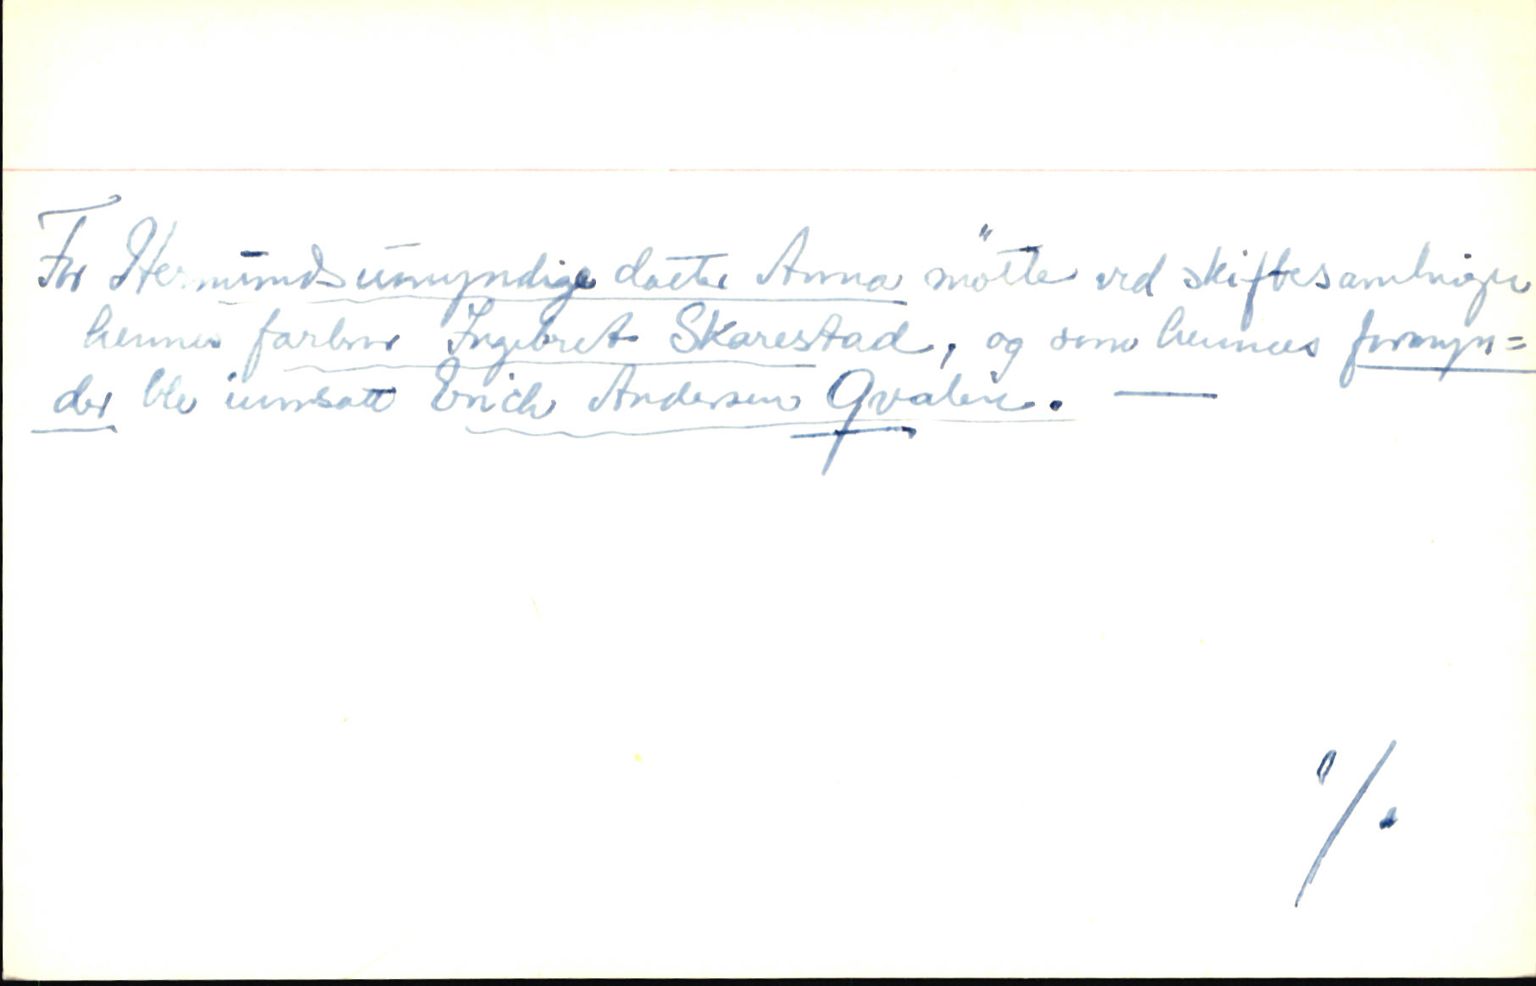 For Hermunds umyndige datter Anna mötte ved skiftesamlingen
hennes farbror Ingebret Skarestad, og som hennes formyn=
der ble innsatt Erich Andersen Qvalen. —
./.